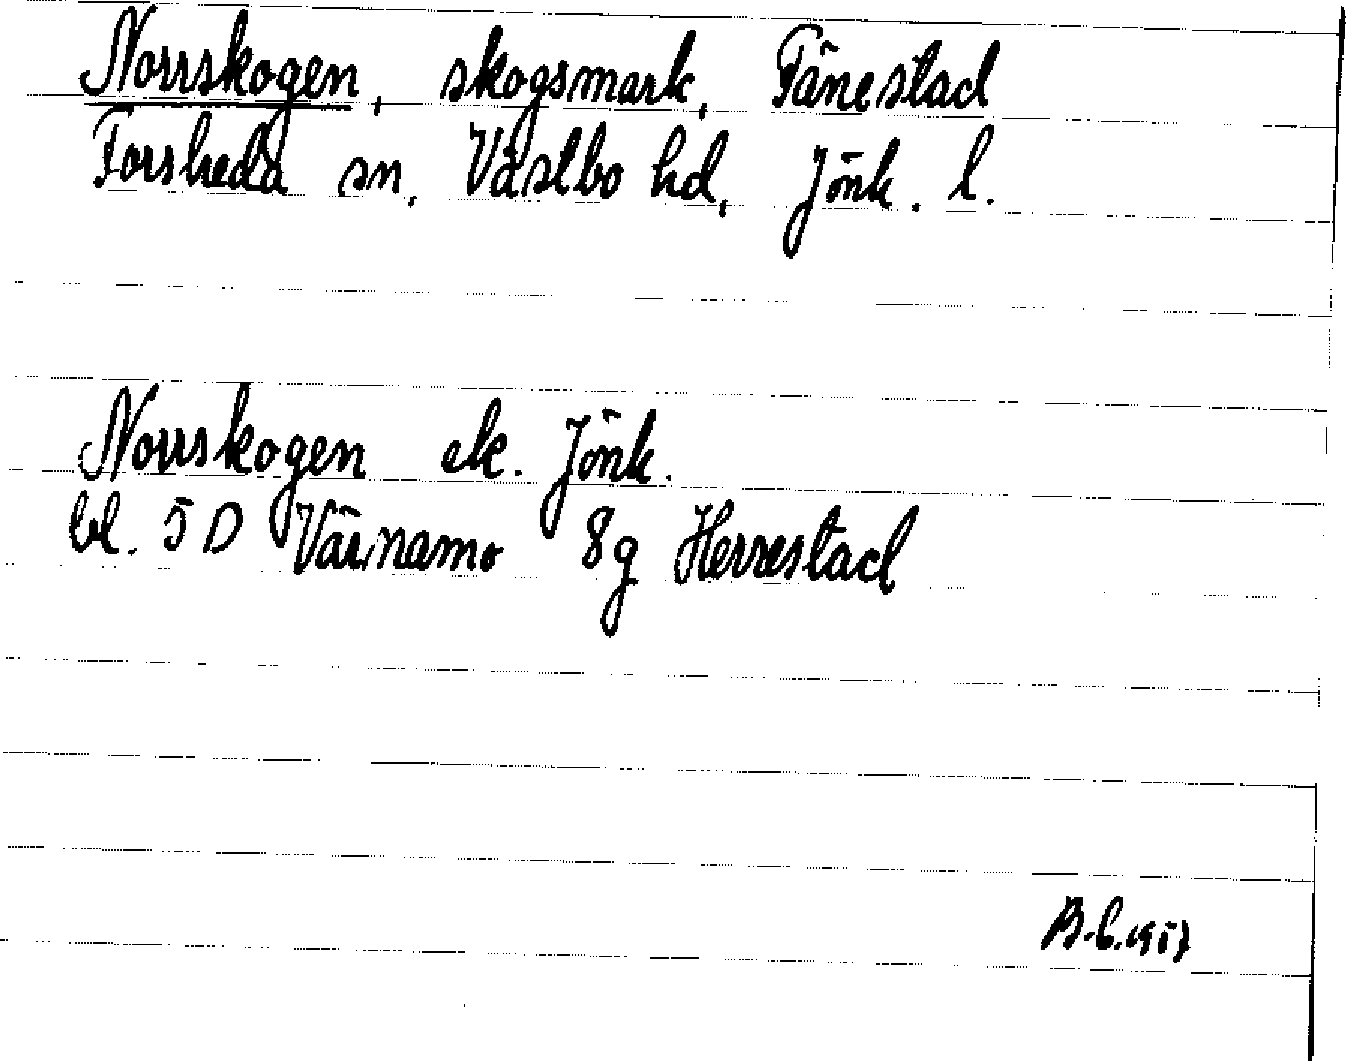 Norrskogen, skogsmark, Tånestad
Forsheda sn, Västbo hd, Jönk. l.
Norrskogen ek. Jönk.
bl. 5 D Värnamo 8g Herrestad